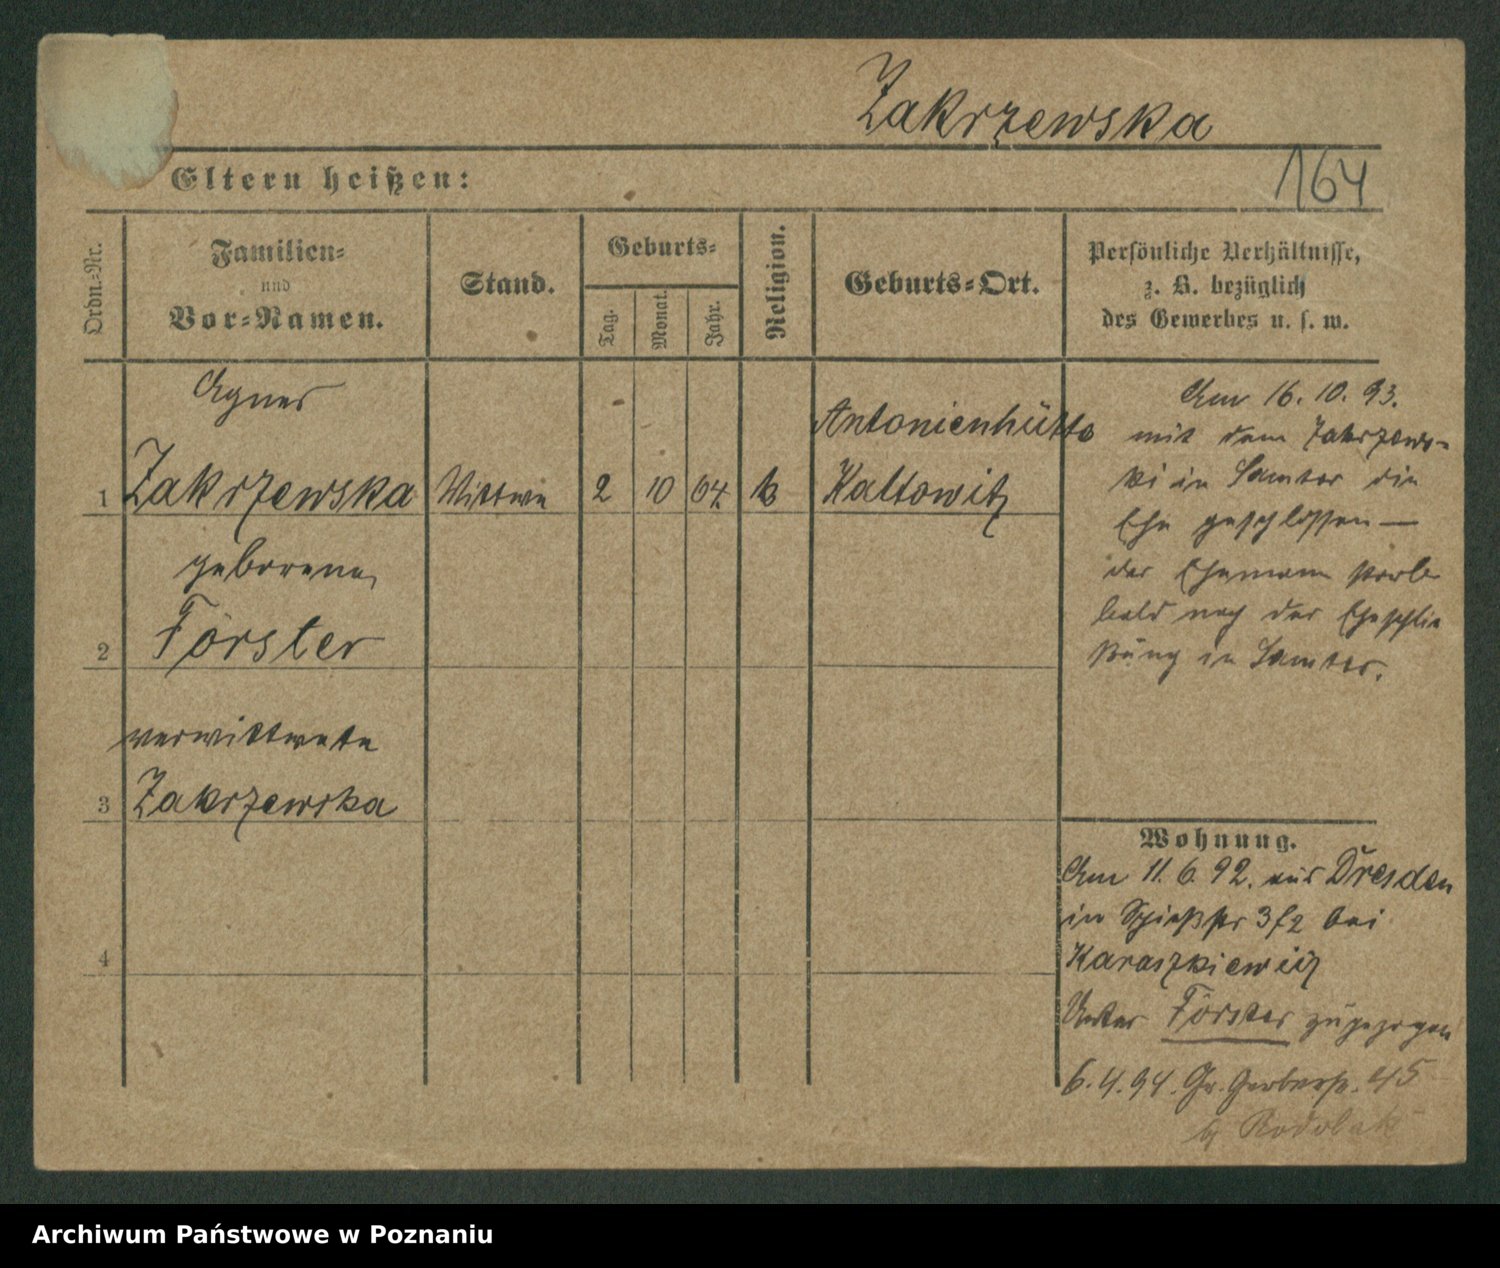 Zakrzewska
164
Eltern heißen:
Ordn.-Nr.
Familien-
und
Vor-Namen.
Stand.
Geburts-
Tag.
Monat.
Jahr.
Religion.
Geburts-Ort.
Persönliche Verhältnisse,
z. B. bezüglich
des Gewerbes u. s. w.
Agnes
1 Zakrzewska Wittwe 2 10 64 k Antonienhütte
Kattowitz
geborene
2 Förster
verwittwete
3 Zakrzewska
4
Am 16. 10. 93.
mit dem Zakrzews-
ki in Samter die
Ehe geschlossen —
der Ehemann starb
bald nach der Eheschlie
ßung in Samter.
Wohnung.
Am 11. 6. 92. aus Dresden
in Schießstr 3 bei
Karaszkiewicz
Unter Förster zugezogen
6. 4. 94. Gr. Gerberstr. 45
b/
Archiwum Państwowe w Poznaniu